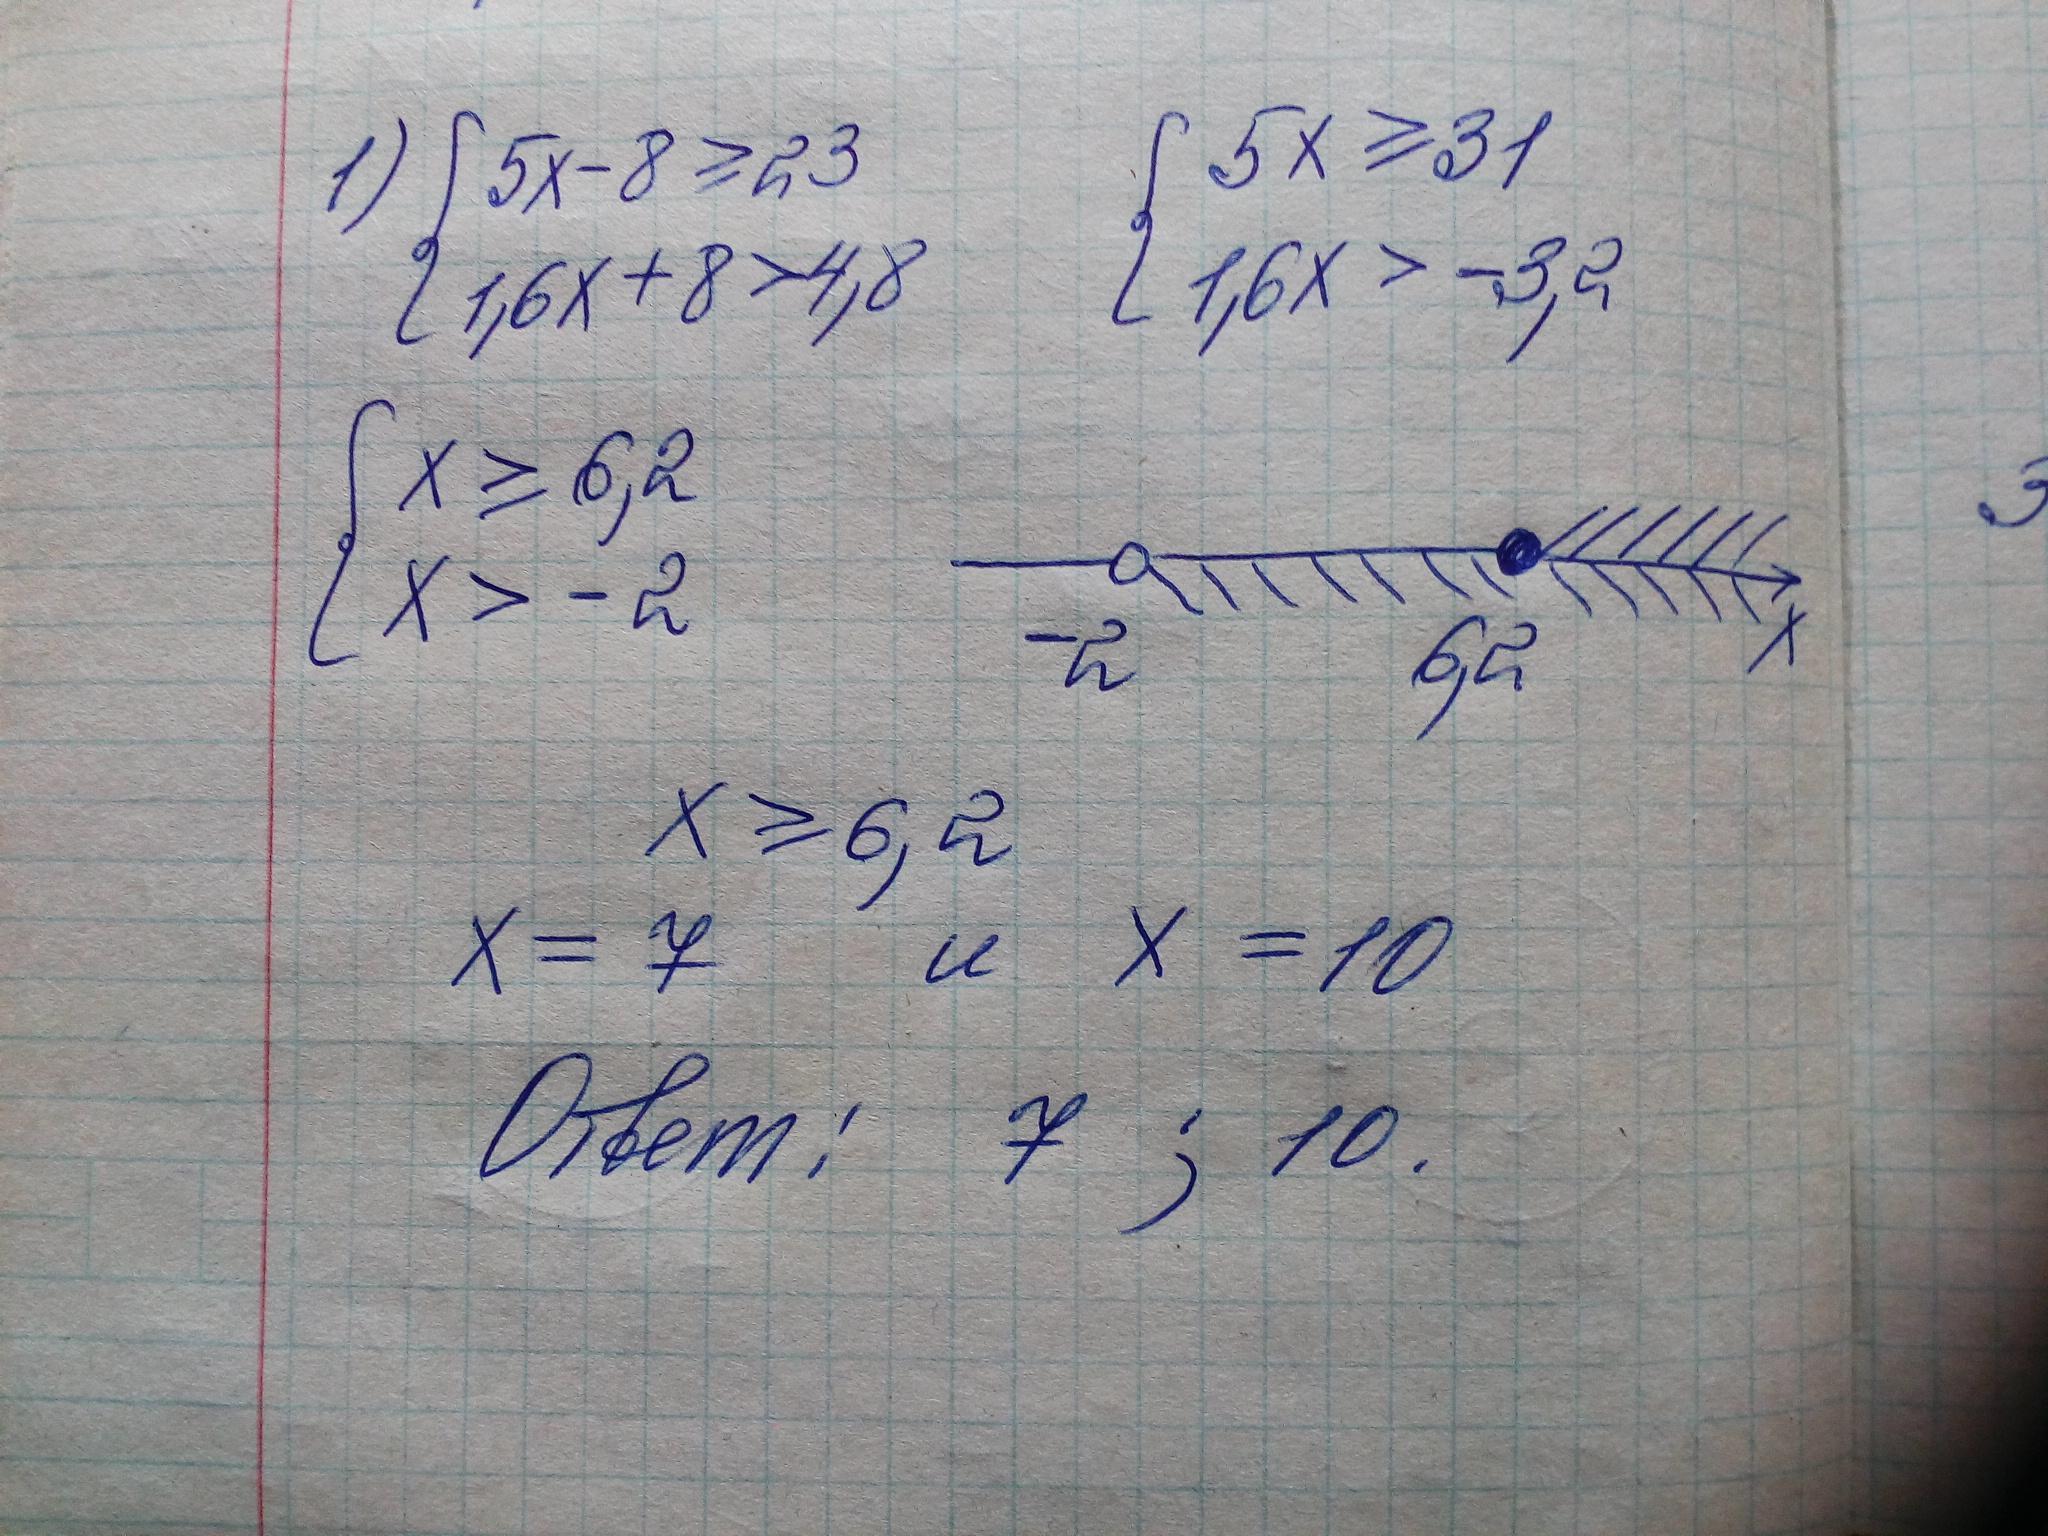 1) { 5x - 8 ≥ 23 { 5x ≥ 31
1,6x + 8 > 4,8 1,6x > -3,2
{ x ≥ 6,2
x > -2
-2 6,2 x
x ≥ 6,2
x = 7 и x = 10
Ответ: 7 ; 10.
3